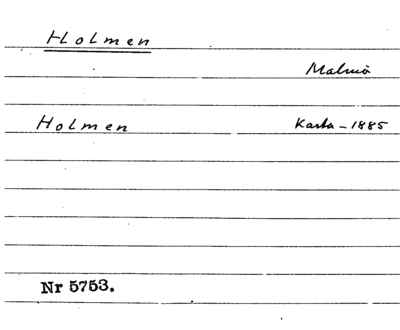 Holmen
Malmö
Holmen Karta - 1885
Nr 5753.